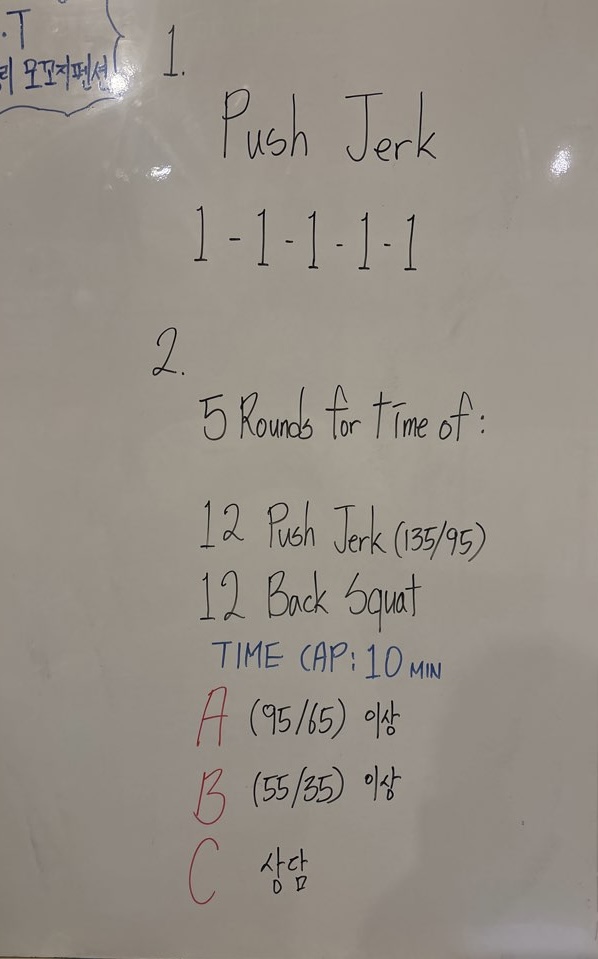 .T
리 모꼬지펜션
1.
Push Jerk
1-1-1-1-1
2.
5 Rounds for time of:
12 Push Jerk (135/95)
12 Back Squat
TIME CAP: 10 MIN
A (95/65) 이상
B (55/35) 이상
C 상담